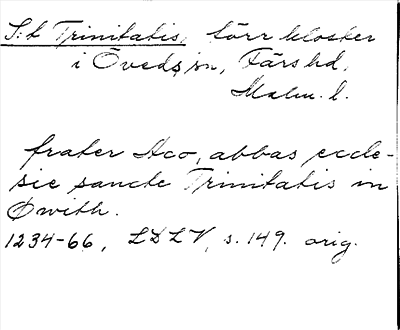 S:t Trinitatis, förr kloster
i Öveds sn, Färs hd,
Malm. l.
frater Aco, abbas eccle-
sie sancte Trinitatis in
Øwith.
1234-66, LDLV, s. 149. orig.